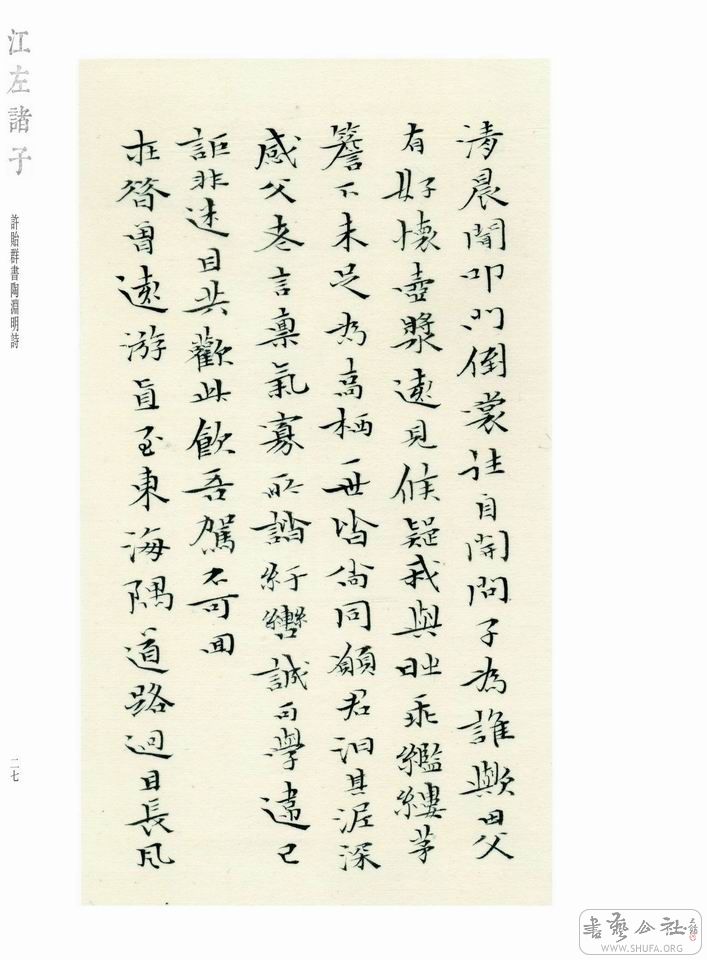 清晨聞叩門倒裳往自開問子為誰歟田父
有好懷壺漿遠見候疑我與時乖繿縷茅
簷下未足為高栖一世皆尚同願君汩其泥深
感父老言稟氣寡所諧紆轡誠可學違己
詎非迷且共歡此飲吾駕不可回
在昔曾遠游直至東海隅道路迥且長風
江左諸子
許貽群書陶淵明詩
二七
書藝公社
WWW.SHUFA.ORG